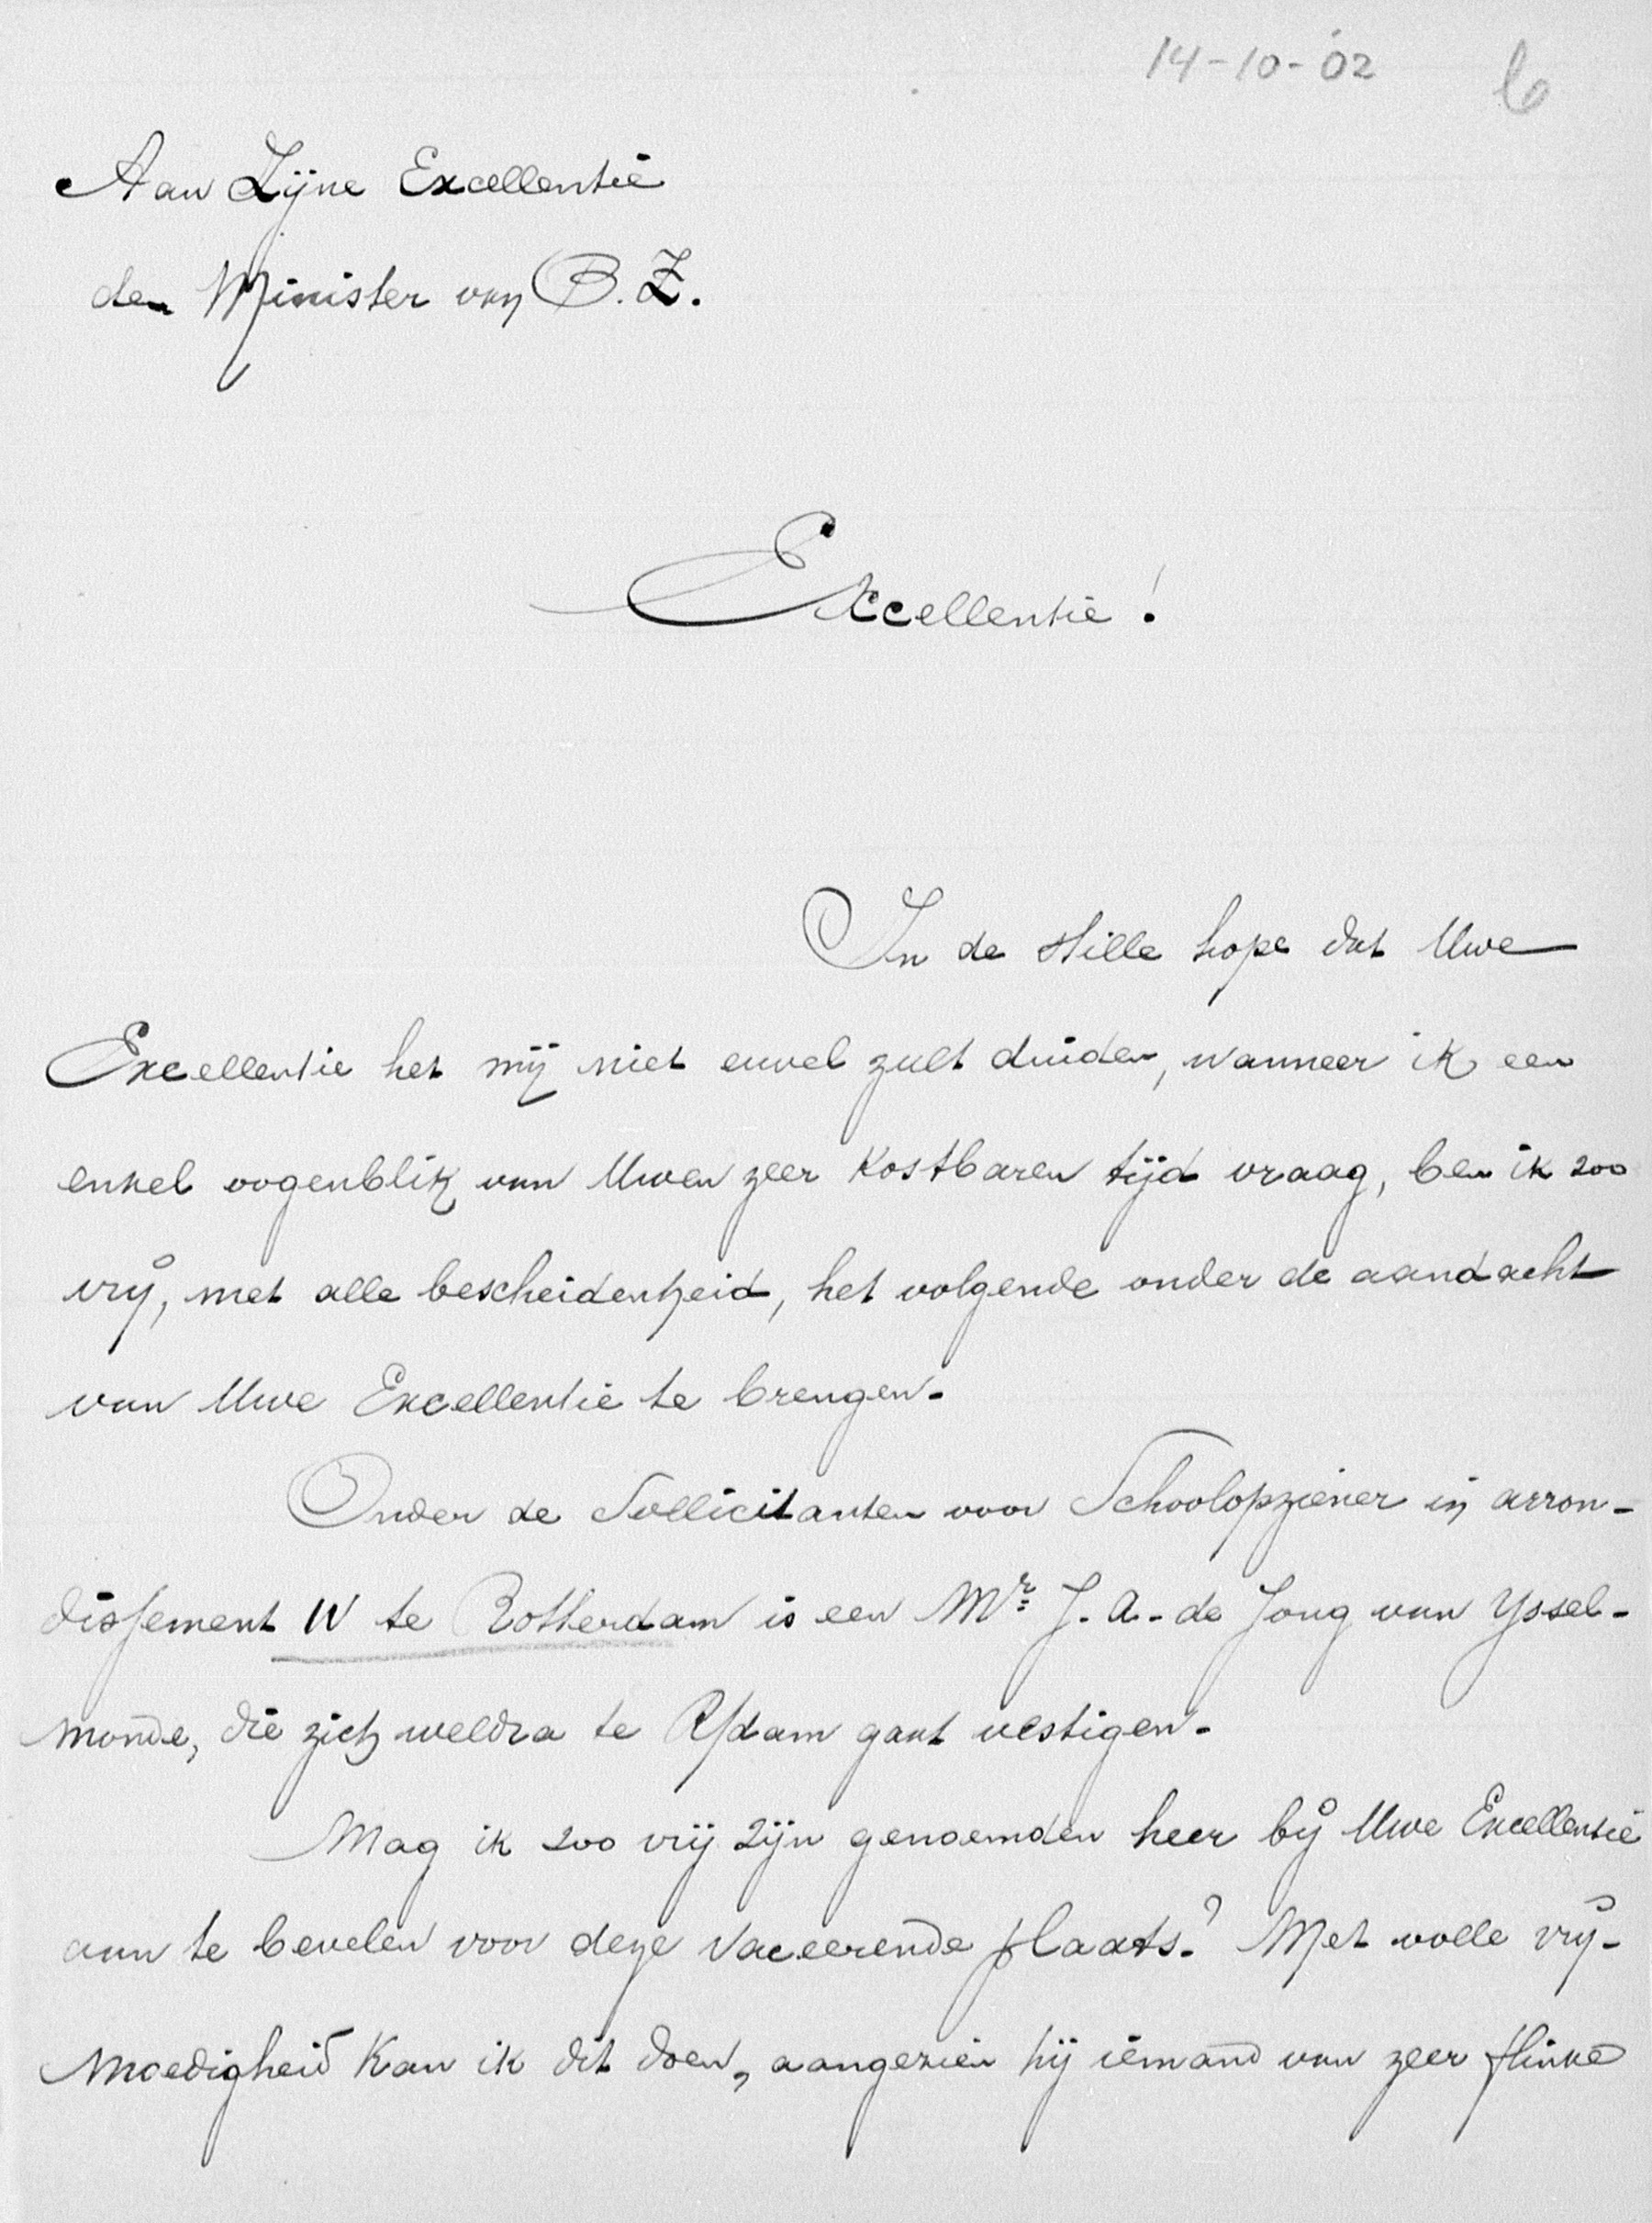 14-10-'02 6
Aan Zijne Excellentie
den Minister van B. Z.
Excellentie!
In de stille hope dat Uwe
Excellentie het mij niet euvel zult duiden, wanneer ik een
enkel oogenblik van Uwen zeer kostbaren tijd vraag, ben ik zoo
vrij, met alle bescheidenheid, het volgende onder de aandacht
van Uwe Excellentie te brengen.
Onder de Sollicitanten voor Schoolopziener in arron-
dissement IV te Rotterdam is een Mr. J. A. de Jong van Yssel-
monde, die zich weldra te R/dam gaat vestigen.
Mag ik zoo vrij zijn genoemden heer bij Uwe Excellentie
aan te bevelen voor deze vaceerende plaats? Met volle vrij-
moedigheid kan ik dit doen, aangezien hij iemand van zeer flinke